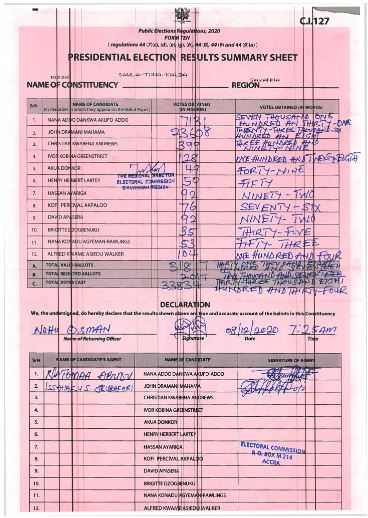 C.I.127
Public Elections Regulations, 2020
FORM TEN
PRESIDENTIAL ELECTION RESULTS SUMMARY SHEET
NAME OF CONSTITUENCY SAWLA-TUNA-KALBA REGION SAVANNAH
S/N NAME OF CANDIDATE VOTES OBTAINED (IN FIGURES) VOTES OBTAINED (IN WORDS)
(In the order in which they appear on the Ballot Paper)
1. NANA ADDO DANKWA AKUFO ADDO 7131 SEVEN THOUSAND ONE HUNDRED AN THIRTY-ONE
2. JOHN DRAMANI MAHAMA TWENTY-THREE THOUSAND SIX HUNDRED AN EIGHT
3. CHRISTIAN KWABENA ANDREWS 399 THREE HUNDRED AND NINETY-NINE
4. IVOR KOBINA GREENSTREET 128 ONE HUNDRED AND TWENTY-EIGHT
5. AKUA DONKOR 49 FORTY-NINE
THE REGIONAL DIRECTOR
ELECTORAL COMMISSION
SAVANNAH REGION
6. HENRY HERBERT LARTEY 50 FIFTY
7. HASSAN AYARIGA 92 NINETY-TWO
8. KOFI PERCIVAL AKPALOO 76 SEVENTY-SIX
9. DAVID APASERA 92 NINETY-TWO
10. BRIGITTE DZOGBENUKU 35 THIRTY-FIVE
11. NANA KONADU AGYEMAN-RAWLINGS 53 FIFTY THREE
12. ALFRED KWAME ASIEDU WALKER 104 ONE HUNDRED AND FOUR
A. TOTAL VALID BALLOTS
B. TOTAL REJECTED BALLOTS
C. TOTAL VOTES CAST 33834 THIRTY-THREE THOUSAND EIGHT HUNDRED AND THIRTY-FOUR
DECLARATION
We, the undersigned, do hereby declare that the results shown above are true and accurate account of the ballots in this Constituency
NUHU OSMAN 08/12/2020 7:25AM
Name of Returning Officer Signature Date Time
S/N NAME OF CANDIDATE'S AGENT NAME OF CANDIDATE SIGNATURE OF AGENT
1. NANA ADDO DANKWA AKUFO ADDO
2. JOHN DRAMANI MAHAMA
3. CHRISTIAN KWABENA ANDREWS
4. IVOR KOBINA GREENSTREET
5. AKUA DONKOR
6. HENRY HERBERT LARTEY
7. HASSAN AYARIGA
8. KOFI PERCIVAL AKPALOO
9. DAVID APASERA
10. BRIGITTE DZOGBENUKU
11. NANA KONADU AGYEMAN-RAWLINGS
12. ALFRED KWAME ASIEDU WALKER
ELECTORAL COMMISSION
P. O. BOX M 214
ACCRA